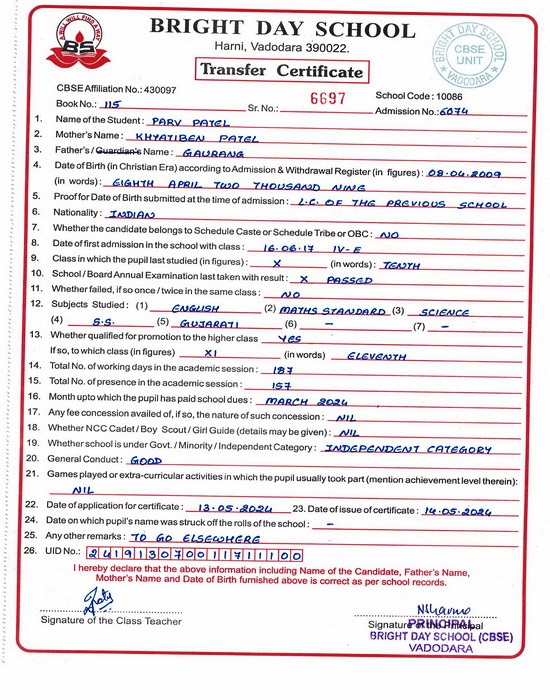 A WILL WILL FIND A WAY
BS
BRIGHT DAY SCHOOL
Harni, Vadodara 390022.
BRIGHT DAY SCHOOL
CBSE
UNIT
VADODARA
Transfer Certificate
CBSE Affiliation No.: 430097
School Code : 10086
Book No.: 115 Sr. No.: 6697 Admission No.: 6074
1. Name of the Student : PARV PATEL
2. Mother's Name : KHYATIBEN PATEL
3. Father's / Guardian's Name : GAURANG
4. Date of Birth (in Christian Era) according to Admission & Withdrawal Register (in figures) : 08.04.2009
(in words) : EIGHTH APRIL TWO THOUSAND NINE
5. Proof for Date of Birth submitted at the time of admission : L.C. OF THE PREVIOUS SCHOOL
6. Nationality : INDIAN
7. Whether the candidate belongs to Schedule Caste or Schedule Tribe or OBC : NO
8. Date of first admission in the school with class : 16.06.17 IV-E
9. Class in which the pupil last studied (in figures) : X (in words) : TENTH
10. School / Board Annual Examination last taken with result : X PASSED
11. Whether failed, if so once / twice in the same class : NO
12. Subjects Studied : (1) ENGLISH (2) MATHS STANDARD (3) SCIENCE
(4) S.S. (5) GUJARATI (6) – (7) –
13. Whether qualified for promotion to the higher class YES
If so, to which class (in figures) XI (in words) ELEVENTH
14. Total No. of working days in the academic session : 187
15. Total No. of presence in the academic session : 157
16. Month upto which the pupil has paid school dues : MARCH 2024
17. Any fee concession availed of, if so, the nature of such concession : NIL
18. Whether NCC Cadet / Boy Scout / Girl Guide (details may be given) : NIL
19. Whether school is under Govt. / Minority / Independent Category : INDEPENDENT CATEGORY
20. General Conduct : GOOD
21. Games played or extra-curricular activities in which the pupil usually took part (mention achievement level therein):
NIL
22. Date of application for certificate : 13.05.2024 23. Date of issue of certificate : 14.05.2024
24. Date on which pupil's name was struck off the rolls of the school : –
25. Any other remarks : TO GO ELSEWHERE
26. UID No.: 241913070011711100
I hereby declare that the above information including Name of the Candidate, Father's Name,
Mother's Name and Date of Birth furnished above is correct as per school records.
Signature of the Class Teacher
Signature of the Principal
PRINCIPAL
BRIGHT DAY SCHOOL (CBSE)
VADODARA